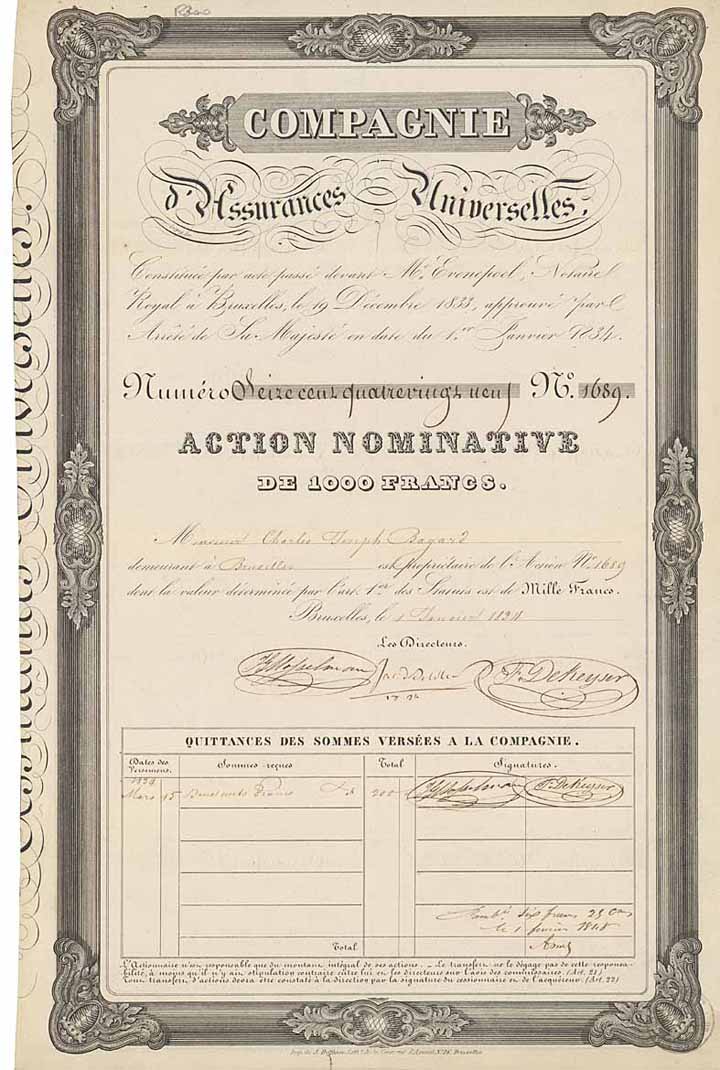 COMPAGNIE
d'Assurances Universelles,
Constituée par acte passé devant Mr. Evenepoel, Notaire
Royal à Bruxelles, le 19 Décembre 1833, approuvé par
Arrêté de Sa Majesté en date du 1er Janvier 1834.
Numéro Seize cent quatrevingt neuf No. 1689.
ACTION NOMINATIVE
DE 1000 FRANCS.
Monsieur Charles Joseph Bayard
demeurant à Bruxelles est propriétaire de l'Action No 1689
dont la valeur déterminée par l'art. 1er des Statuts est de Mille Francs.
Bruxelles, le 1 Janvier 1834
Les Directeurs.
F. DeKeyser
QUITTANCES DES SOMMES VERSÉES A LA COMPAGNIE.
Dates des Versemens. Sommes reçues Total Signatures.
1834
Mars 15 Deux cents Francs 200 F. DeKeyser
six francs 25 Cms
le 1 fevrier 1848
Total
L'Actionnaire n'est responsable que du montant intégral de ses actions. _ Le transfert ne le dégage pas de cette responsa-
bilité, à moins qu'il n'y ait stipulation contraire entre lui et les directeurs sur l'avis des commissaires. (Art. 21)
Tout transfert d'actions devra être constaté à la direction par la signature du cessionnaire et de l'acquéreur. (Art. 22)
Imp. de J. Bruxelles
Assurances Universelles.